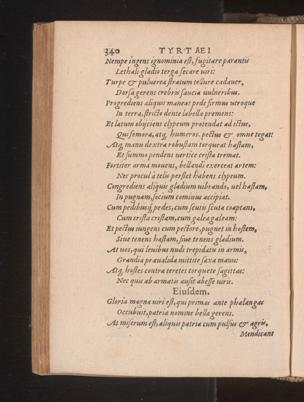 340 TYRTAEI
Nempe ingens ignominia est, fugitare parantis
Lethali gladio terga secare viri:
Turpe & pulverea stratum tellure cadaver,
Dorsa gerens crebris saucia vulneribus.
Progrediens aliquis maneat pede firmus utroque
In terra, stricto dente labella premens:
Et latum obijciens clypeum protendat ad ictus,
Qui femora, atq; humeros, pectus & omne tegat:
Atq; manu dextra robustam torqueat hastam,
Et summo pendens vertice crista tremat.
Fortiter arma movens, bellandi exerceat artem:
Nec procul à telis perstet habens clypeum.
Congrediens aliquis gladium vibrando, vel hastam,
In pugnam, secum cominus accipiat.
Cum pedibusq; pedes, cum scutis scuta coaptans,
Cum crista cristam, cum galea galeam:
Et pectus iungens cum pectore, pugnet in hostem,
Sive tenens hastam, sive tenens gladium.
At vos, qui levibus nudi trepidatis in armis,
Grandia praevalida mittite saxa manu:
Atq; hostes contra teretes torquete sagittas:
Nec quis ab armatis ausit abesse viris.
Eiusdem.
Gloria magna viri est, qui primus ante phalangas
Occubuit, patria nomine bella gerens.
At miserum est, aliquis patria cum pulsus & agris,
Mendicant